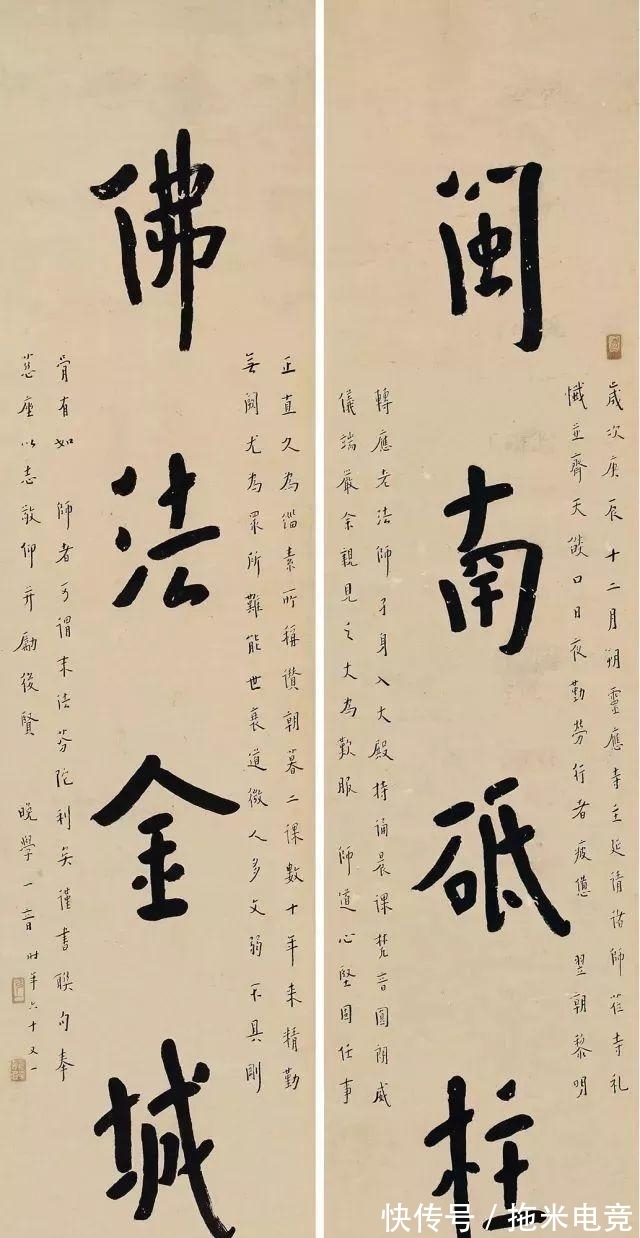 閩南砥柱
歲次庚辰十二月朔靈應寺主延請諸師莅寺礼
懺並齊天燄口日夜勤勞行者疲憊 翌朝黎明
轉應老法師孑身入大殿持誦晨課梵音圓朗威
儀端嚴余親見之大為歎服 師道心堅固任事
佛法金城
正直久為緇素所稱讚朝暮二課數十年来精勤
無闕尤為眾所難能世衰道微人多文弱不具剛
骨有如 師者可謂末法芬陀利矣謹書聯句奉
慈座以志敬仰并勵後賢 晚學一音時年六十又一
快传号 / 拖米电竞